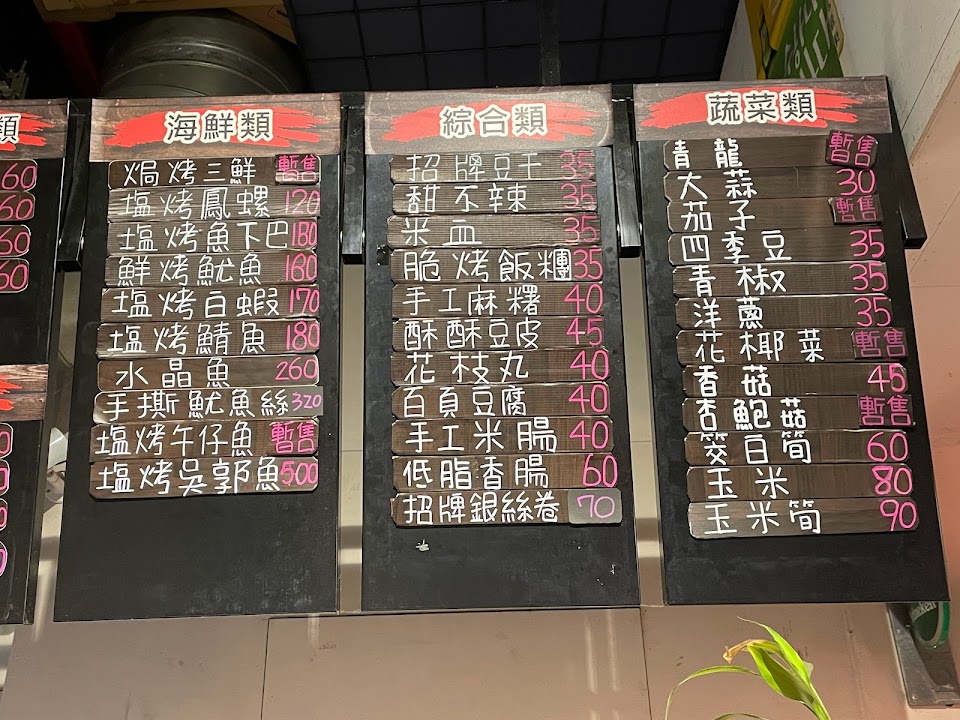 類
60
60
60
60
海鮮類
焗烤三鮮 暫售
塩烤鳳螺 120
塩烤魚下巴 180
鮮烤魷魚 180
塩烤白蝦 170
塩烤鯖魚 180
水晶魚 260
手撕魷魚絲 320
塩烤午仔魚 暫售
塩烤吳郭魚 500
綜合類
招牌豆干 35
甜不辣 35
米血 35
脆烤飯糰 35
手工麻糬 40
酥酥豆皮 45
花枝丸 40
百頁豆腐 40
手工米腸 40
低脂香腸 60
招牌銀絲卷 70
蔬菜類
青龍 暫售
大蒜 30
茄子 暫售
四季豆 35
青椒 35
洋蔥 35
花椰菜 暫售
香菇 45
杏鮑菇 暫售
筊白筍 60
玉米 80
玉米筍 90